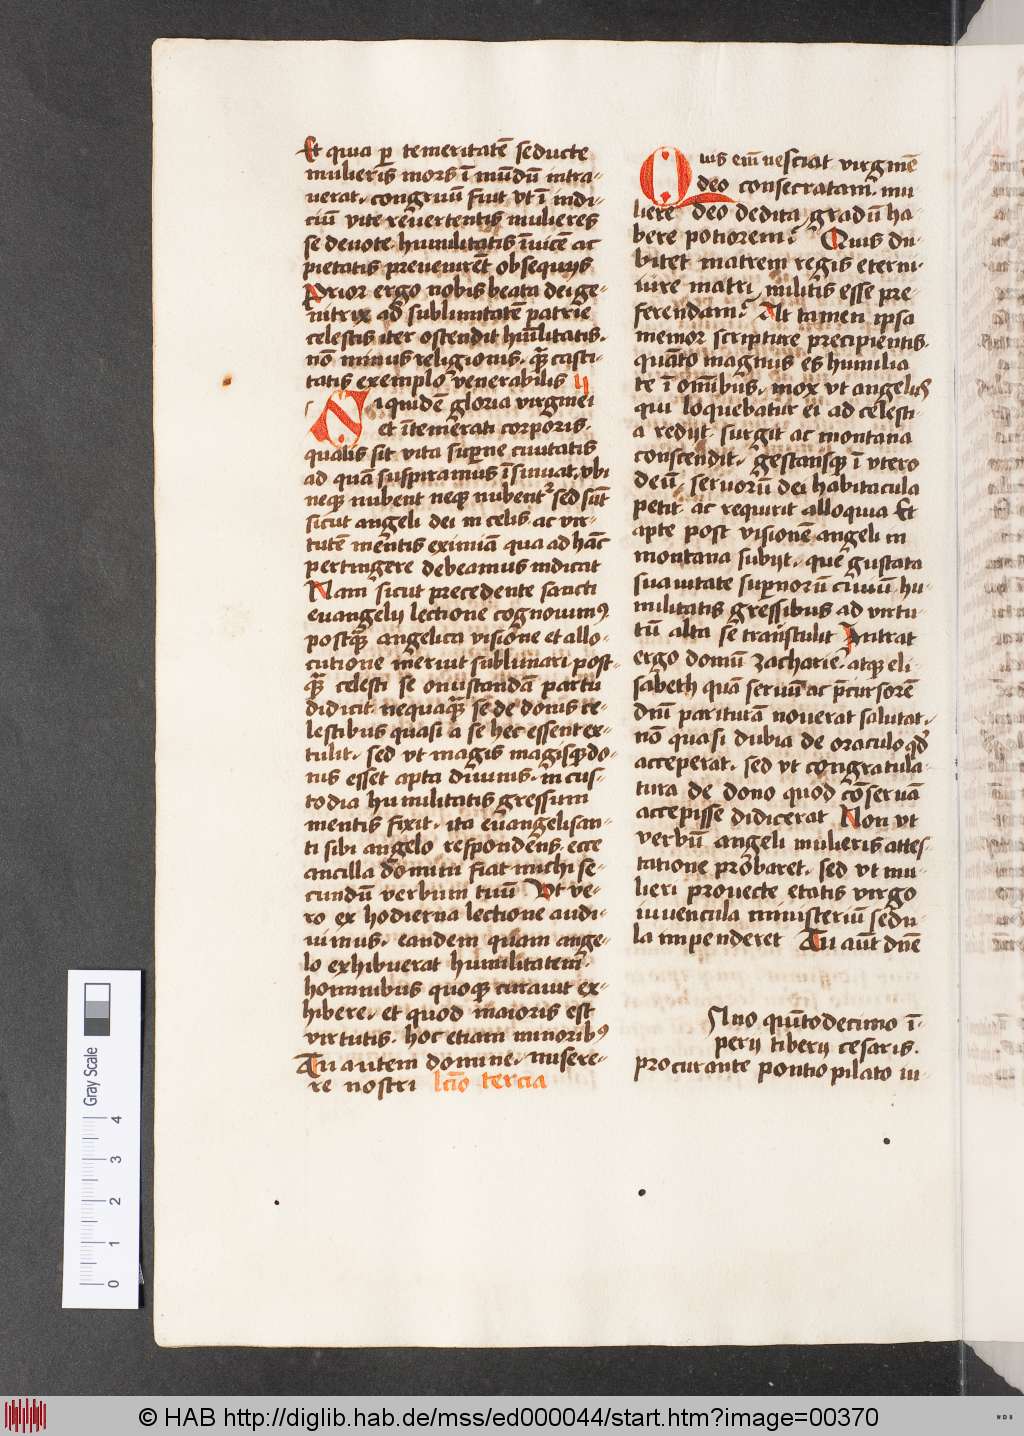 Et quia ꝑ temeritatē seducte
mulieris mors ī mūdū intra-
uerat, congruū fuit vt ī indi-
ciū vite reuertentis mulieres
se deuote humilitatis īuicē ac
pietatis preuenirēt obsequijs
Prior ergo nobis beata dei ge-
nitrix ad sublimitatē patrie
celestis iter ostendit hūilitatis.
nō minus religionis. qᷓ casti-
tatis exemplo venerabilis ij
Siquidem gloria virginei
et ītemerati corporis.
qualis sit vita suꝑne ciuitatis
ad quā suspiramus īsinuat. vbi
neqꝫ nubent neqꝫ nubent᷑ sed sūt
sicut angeli dei in celis. ac vir-
tutē mentis eximiā qua ad hāc
pertingere debeamus indicat
Nam sicut precedente sancti
euangelij lectione cognouimꝰ.
postqᷓ angelica visione et allo-
cutione meruit sublimari post-
qᷓ celesti se onustandā partu
didicit. nequaqᷓ se de donis ce-
lestibus quasi a se hec essent ex-
tulit. sed vt magis magisqꝫ do-
nis esset apta diuinis. in cus-
todia humilitatis gressum
mentis fixit. ita euangelisan-
ti sibi angelo respondens. ecce
ancilla domini fiat michi se-
cundū verbum tuū Vt ve-
ro ex hodierna lectione audi-
uimus. eandem quam ange-
lo exhibuerat humilitatem.
hominibus quoqꝫ curauit ex-
hibere. et quod maioris est
virtutis. hoc etiam minoribꝰ
Tu autem domine. misere-
re nostri lc̄io tercia
Quis eī nesciat virginē
deo consecratam. mu
liere deo dedita gradū ha-
bere potiorem? Quis du-
bitet matrem regis eterni
iure matri militis esse pre-
ferendam? At tamen ipsa
memor scripture precipientis.
quāto magnus es humilia
te ī om̄ibus. mox vt angelꝰ
qui loquebatur ei ad celesti-
a redijt. surgit ac montana
conscendit. gestansqꝫ ī vtero
deū. seruorū dei habitacula
petit. ac requirit alloquia Et
apte post visionē angeli in
montana subijt. que gustata
suauitate suꝑnorū ciuiū. hu-
militatis gressibus ad virtu-
tū alta se transtulit Intrat
ergo domū zacharie. atqꝫ eli-
sabeth quā seruū ac p̄cursorē
dn̄i pariturā nouerat salutat.
nō quasi dubia de oraculo qd̄
acceperat. sed vt congratula-
tura de dono quod cōseruā
accepisse didicerat Non vt
verbū angeli mulieris attes
tatione probaret. sed vt mu-
lieri prouecte etatis virgo
iuuencula ministeriū sedu-
la impenderet Tu aūt dn̄e
Āno quītodecimo ī-
perij tiberij cesaris.
procurante pontio pilato iu-
Gray Scale
0 1 2 3 4
© HAB http://diglib.hab.de/mss/ed000044/start.htm?image=00370